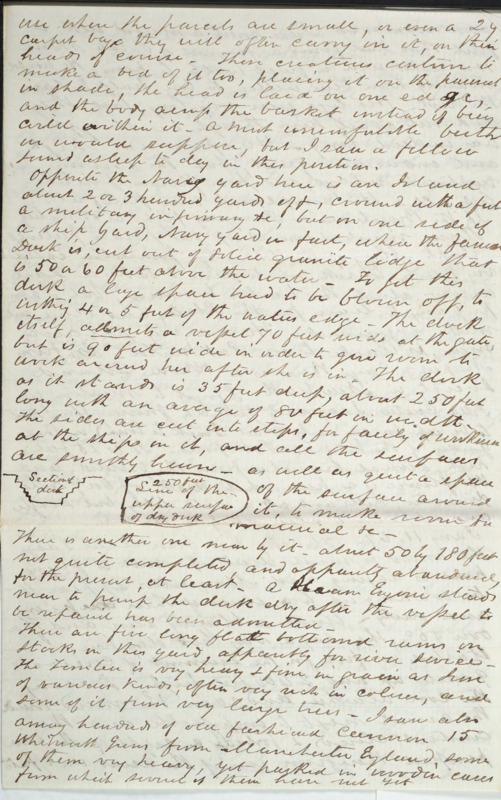 use when the parcels are small, or even a 24
carpet bag they will often carry on it, on their
heads of course - These creatures contrive to
make a bed of it too, placing it on the pavement
in shade, the head is laid on one edge,
and the body across the basket instead of being
curled within it - a most uncomfortable berth
one would suppose, but I saw a fellow
sound asleep to day in this position.
Opposite the Navy yard here is an Island
about 2 or 3 hundred yards off, crowned with a fort
a military infirmary &c, but on one side of
a ship yard, Navy yard in fact, where the famous
Dock is, cut out of solid granite ledge that
is 50 a 60 feet above the water - To get this
dock a large space had to be blown off, to
within 4 or 5 feet of the waters edge - The dock
itself, admits a vessel 70 feet wide at the gate,
but is 90 feet wide in order to give room to
work around her after she is in. The dock
as it stands is 35 feet deep, about 250 feet
long with an average of 80 feet in width.
The sides are cut into steps, for facility of workmen
at the ships in it, and all the surfaces
are smoothly hewn - as well as quite a space
of the surface around
it, to make room for
material &c -
Section of
dock
250 feet
Line of the
upper surface
of dry dock
There is another one near by it - about 50 by 180 feet
not quite completed and apparently abandoned
for the present, at least - a Steam Engine stands
near to pump the dock dry after the vessel to
be repaired has been admitted -
There are five long flatt bottomed rams on
stocks in this yard, apparently for river service -
The timber is very heavy & fine in grain as seen
of various kinds, often very rich in colour, and
some of it from very large trees - I saw also
among hundreds of old fashioned Cannon 15
Whitworth Guns from Manchester England, some
of them very heavy, yet packed in wooden cases
from which several of them have not yet